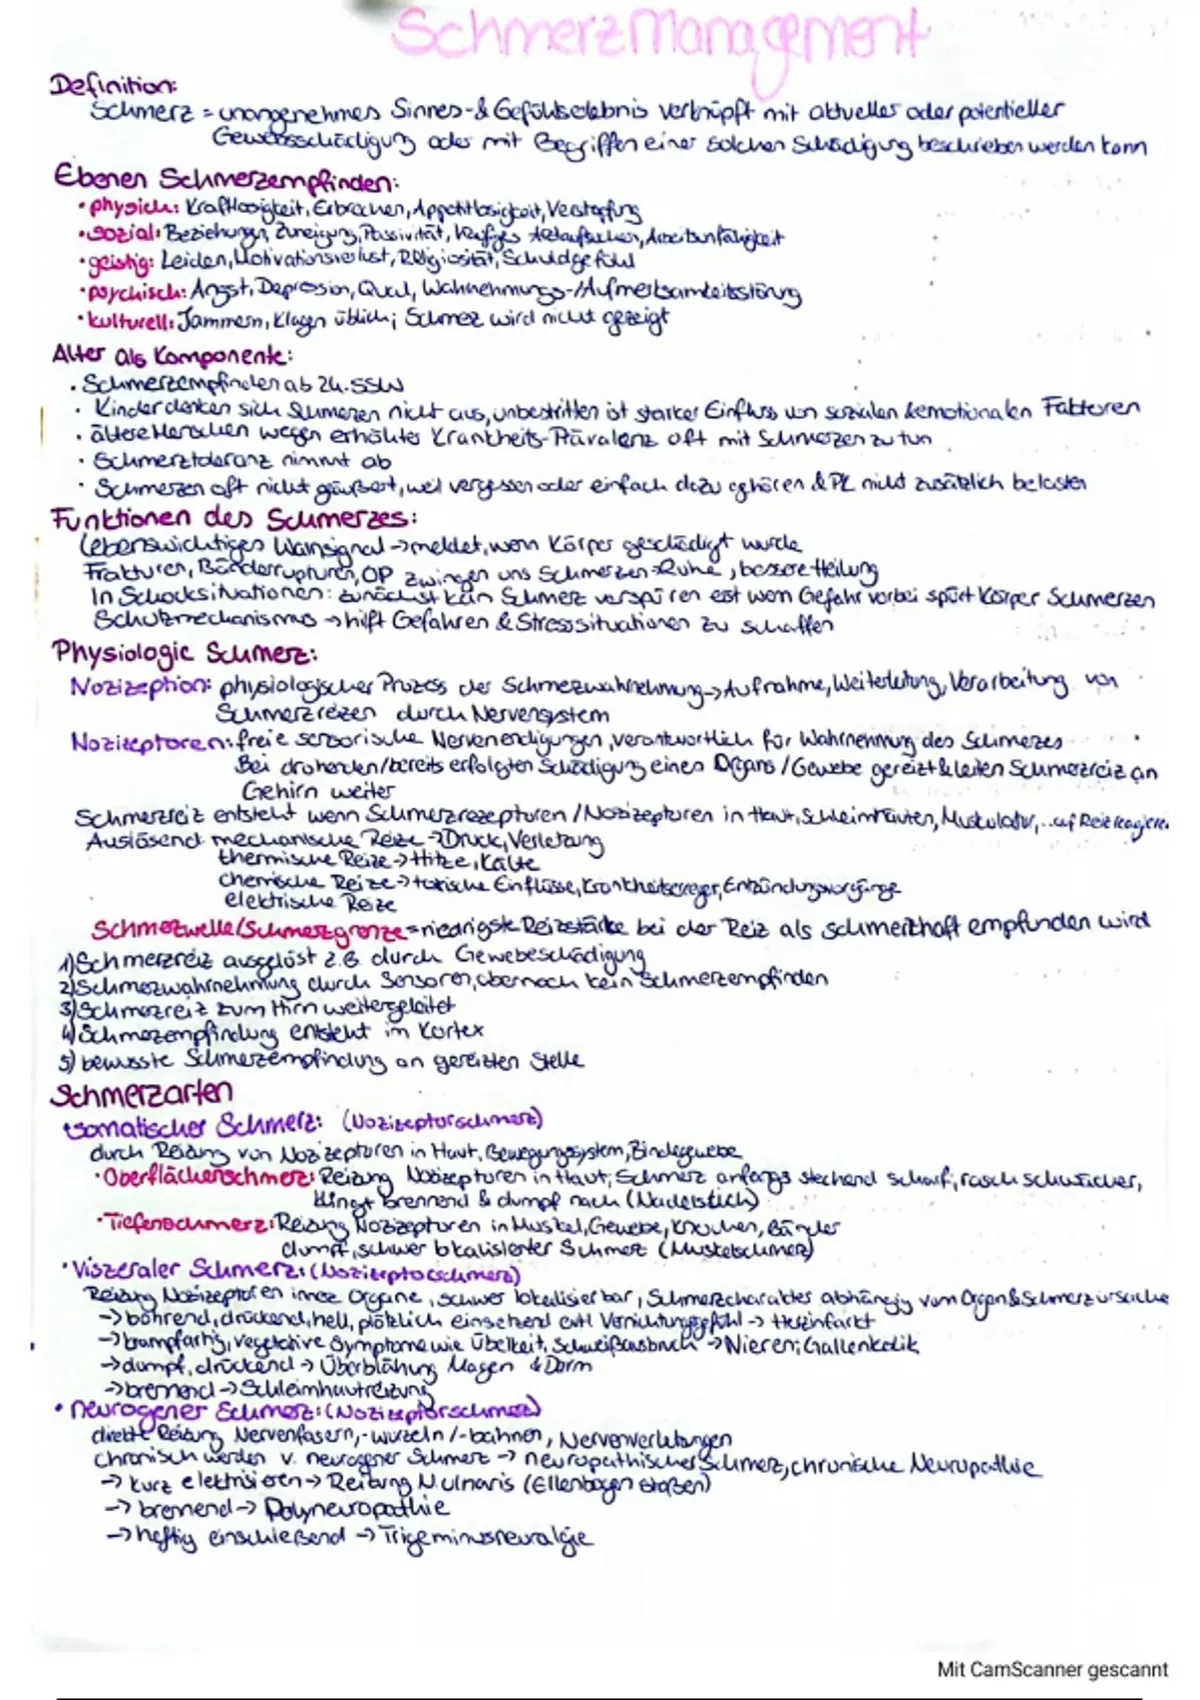 Schmerzmanagement
Definition:
Schmerz = unangenehmes Sinnes- & Gefühlserlebnis verknüpft mit aktueller oder potentieller
Gewebsschädigung oder mit Begriffen einer solchen Schädigung beschrieben werden kann
Ebenen Schmerzempfinden:
• physich: Kraftlosigkeit, Erbrechen, Appetitlosigkeit, Verstopfung
• sozial: Beziehungen, Zuneigung, Passivität, häufiges Arztaufsuchen, Arbeitsunfähigkeit
• geistig: Leiden, Motivationsverlust, Religiosität, Schuldgefühl
• psychisch: Angst, Depression, Qual, Wahrnehmungs-/Aufmerksamkeitsstörung
• kulturell: Jammern, Klagen üblich; Schmerz wird nicht gezeigt
Alter als Komponente:
• Schmerzempfinden ab 24. SSW
• Kinder denken sich Schmerzen nicht aus, unbestritten ist starker Einfluss von sozialen & emotionalen Faktoren
• ältere Menschen wegen erhöhter Krankheits-Prävalenz oft mit Schmerzen zu tun
• Schmerztoleranz nimmt ab
• Schmerzen oft nicht geäußert, weil vergessen oder einfach dazu gehören & PK nicht zusätzlich belasten
Funktionen des Schmerzes:
Lebenswichtiges Warnsignal → meldet, wenn Körper geschädigt wurde
Frakturen, Bänderrupturen, OP zwingen uns Schmerzen → Ruhe, bessere Heilung
In Schocksituationen: zunächst kein Schmerz verspüren erst wenn Gefahr vorbei spürt Körper Schmerzen
Schutzmechanismus → hilft Gefahren & Stresssituationen zu schaffen
Physiologie Schmerz:
Nozizeption: physiologischer Prozess der Schmerzwahrnehmung → Aufnahme, Weiterleitung, Verarbeitung von
Schmerzreizen durch Nervensystem
Nozizeptoren: freie sensorische Nervenendigungen, verantwortlich für Wahrnehmung des Schmerzes
Bei drohenden/bereits erfolgten Schädigung eines Organs/Gewebe gereizt & leiten Schmerzreiz an
Gehirn weiter
Schmerzreiz entsteht wenn Schmerzrezeptoren/Nozizeptoren in Haut, Schleimhäuten, Muskulatur,... auf Reiz reagieren
Auslösend mechanische Reize → Druck, Verletzung
thermische Reize → Hitze, Kälte
chemische Reize → toxische Einflüsse, Krankheitserreger, Entzündungsvorgänge
elektrische Reize
Schmerzwelle/Schmerzgrenze = niedrigste Reizstärke bei der Reiz als schmerzhaft empfunden wird
1) Schmerzreiz ausgelöst z.B durch Gewebeschädigung
2) Schmerzwahrnehmung durch Sensoren, aber noch kein Schmerzempfinden
3) Schmerzreiz zum Hirn weitergeleitet
4) Schmerzempfindung entsteht im Kortex
5) bewusste Schmerzempfindung an gereizten Stelle
Schmerzarten
• somatischer Schmerz: (Nozizeptorschmerz)
durch Reizung von Nozizeptoren in Haut, Bewegungssystem, Bindegewebe
• Oberflächenschmerz: Reizung Nozizeptoren in Haut; Schmerz anfangs stechend scharf, rasch schwächer,
klingt brennend & dumpf nach (Nadelstich)
• Tiefenschmerz: Reizung Nozizeptoren in Muskel, Gewebe, Knochen, Bänder
dumpf, schwer lokalisierter Schmerz (Muskelschmerz)
• Viszeraler Schmerz: (Nozizeptorschmerz)
Reizung Nozizeptoren innere Organe, schwer lokalisierbar, Schmerzcharakter abhängig vom Organ & Schmerzursache
→ bohrend, drückend, hell, plötzlich einsetzend evtl Vernichtungsgefühl → Herzinfarkt
→ krampfartig, vegetative Symptome wie Übelkeit, Schweißausbruch → Nieren; Gallenkolik
→ dumpf, drückend → Überblähung Magen & Darm
→ brennend → Schleimhautreizung
• neurogener Schmerz: (Nozizeptorschmerz)
direkte Reizung Nervenfasern, -wurzeln/-bahnen, Nervenverletzungen
chronisch werden v. neurogener Schmerz → neuropathischer Schmerz, chronische Neuropathie
→ kurz elektrisieren → Reizung N. ulnaris (Ellenbogen stoßen)
→ brennend → Polyneuropathie
→ heftig einschießend → Trigeminusneuralgie
Mit CamScanner gescannt